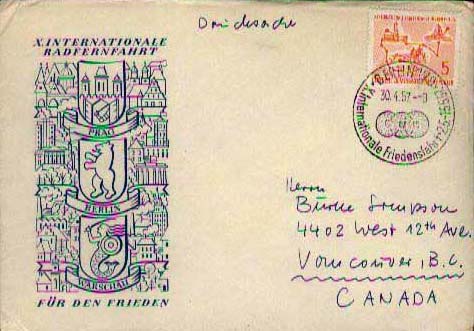 Drucksache
X. INTERNATIONALE
RADFERNFAHRT
PRAG
BERLIN
WARSCHAU
FÜR DEN FRIEDEN
5
BERLIN
30.4.57
Internationale Friedensfahrt
Herrn
Burke Simpson
4402 West 12th Ave.
Vancouver, B.C.
CANADA